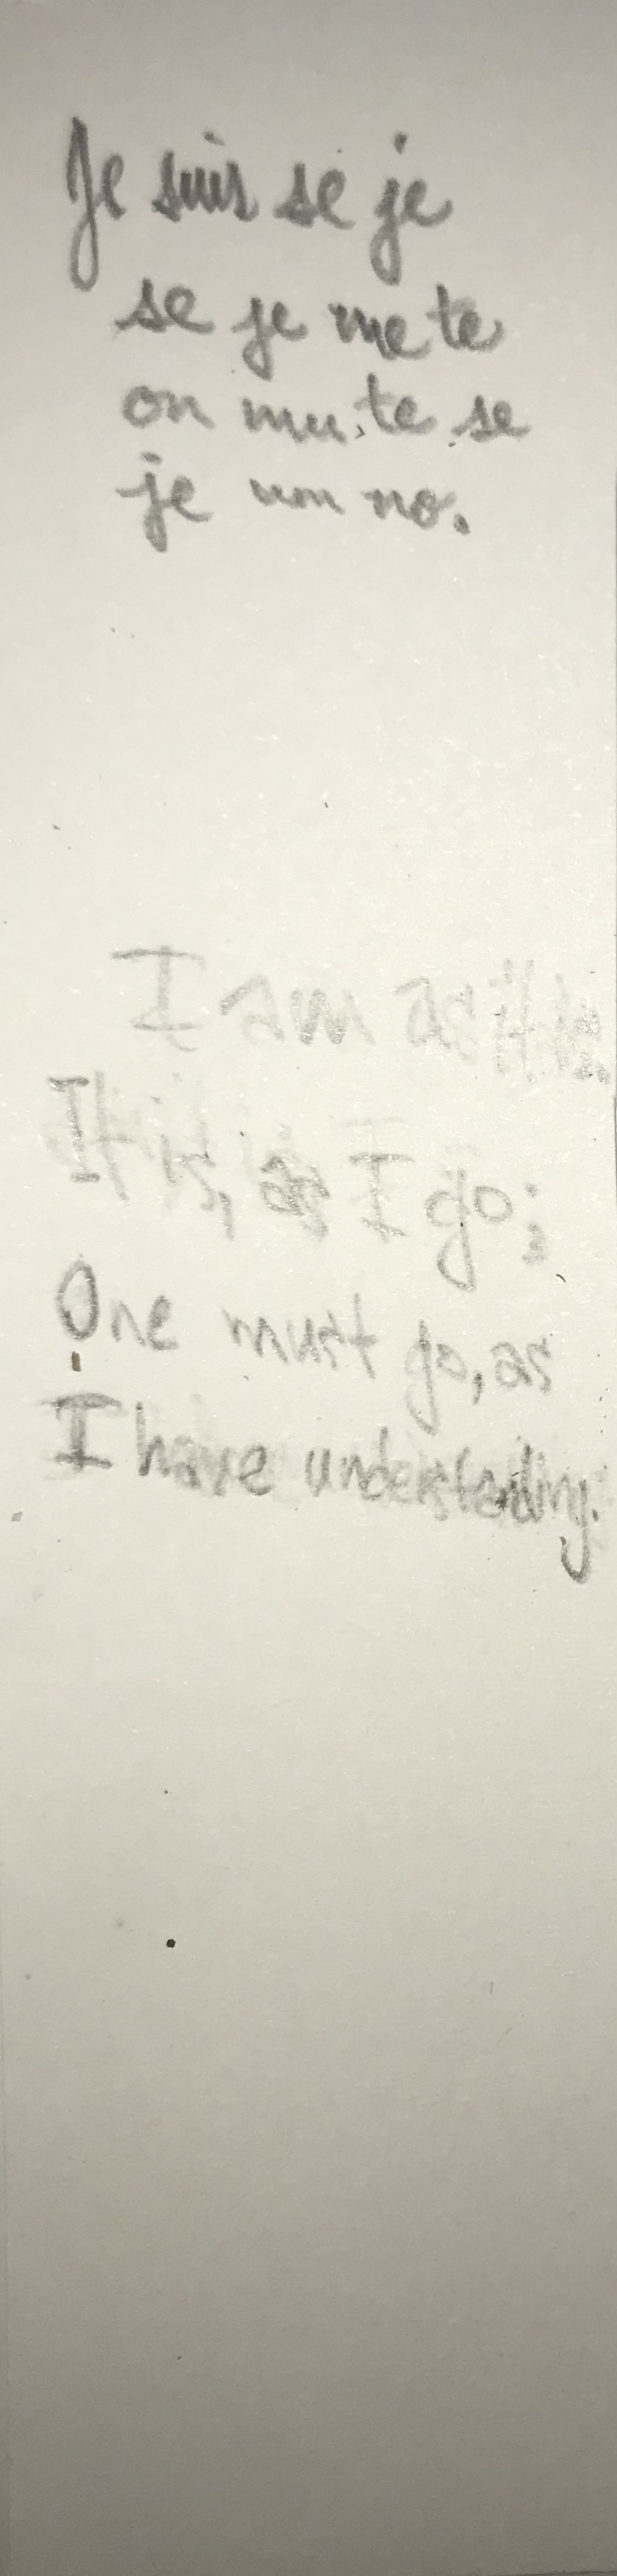 Je suis se je
se je me te
on mu, te se
je um no.
I am as it is.
It is, as I go;
One must go, as
I have understanding.